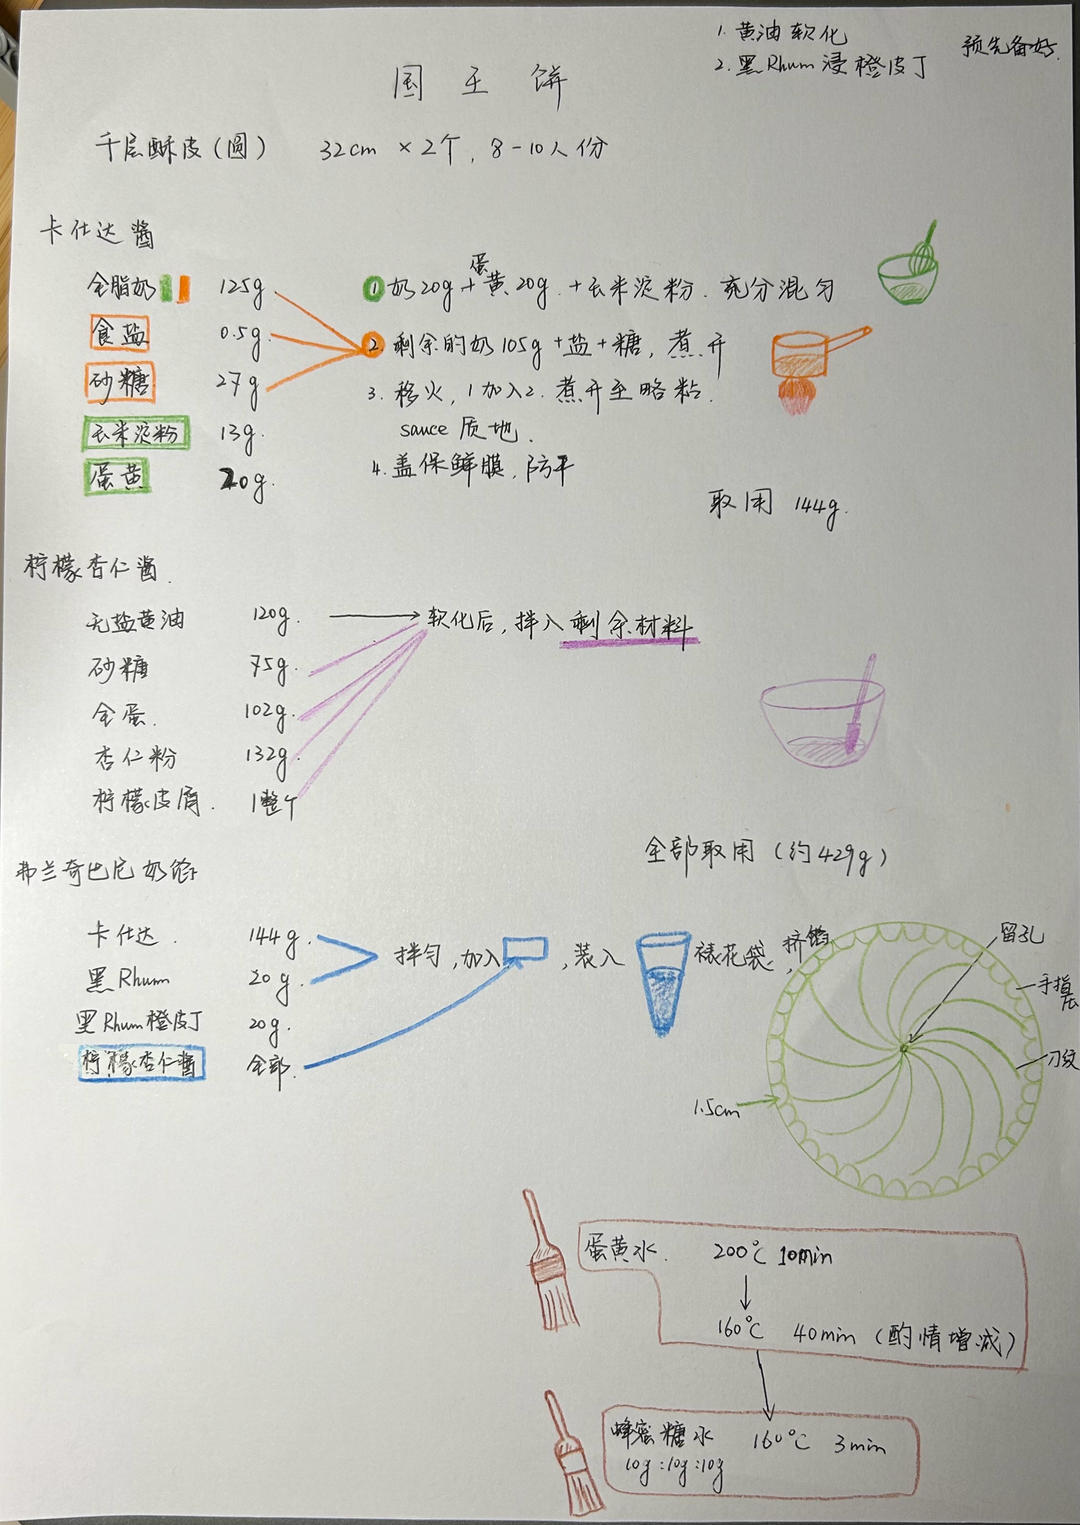 1. 黄油软化
2. 黑Rhum浸橙皮丁
预先备好.
国王饼
千层酥皮(圆) 32cm × 2个, 8-10人份
卡仕达酱
全脂奶 125g ① 奶20g+蛋黄20g.+玉米淀粉.充分混匀
食盐 0.5g. 2. 剩余的奶105g+盐+糖, 煮开
砂糖 27g 3. 移火, 1加入2. 煮开至略粘.
玉米淀粉 13g. sauce 质地.
蛋黄 20g. 4. 盖保鲜膜, 防干
取用 144g.
柠檬杏仁酱.
无盐黄油 120g. 软化后, 拌入剩余材料
砂糖 75g.
全蛋. 102g.
杏仁粉 132g.
柠檬皮屑. 1整个
全部取用 (约429g)
弗兰奇巴尼奶馅
卡仕达. 144g. 拌匀,加入 ,装入 裱花袋, 挤馅
黑Rhum 20g.
黑Rhum橙皮丁 20g.
柠檬杏仁酱 全部.
留孔
手指压
刀纹
1.5cm
蛋黄水. 200℃ 10min
160℃ 40min (酌情增减)
蜂蜜糖水 160℃ 3min
10g:10g:10g